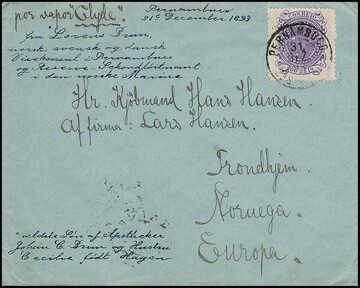 por vapor "Clyde".
Pernambuco
31te December 1893
fra Lorens Brun,
norsk svensk og dansk
Viceconsul i Pernambuco
og Reserve Sekondlöitnant
i den norske Marine
CORREIO
PERNAMBUCO
Hr. Kjöbmand Hans Hansen.
af firma: Lars Hansen.
Trondhjem.
Noruega.
Europa.
"ældste Søn af Apotheker
Johan C. Brun og Hustru
Cecilie født Hagen